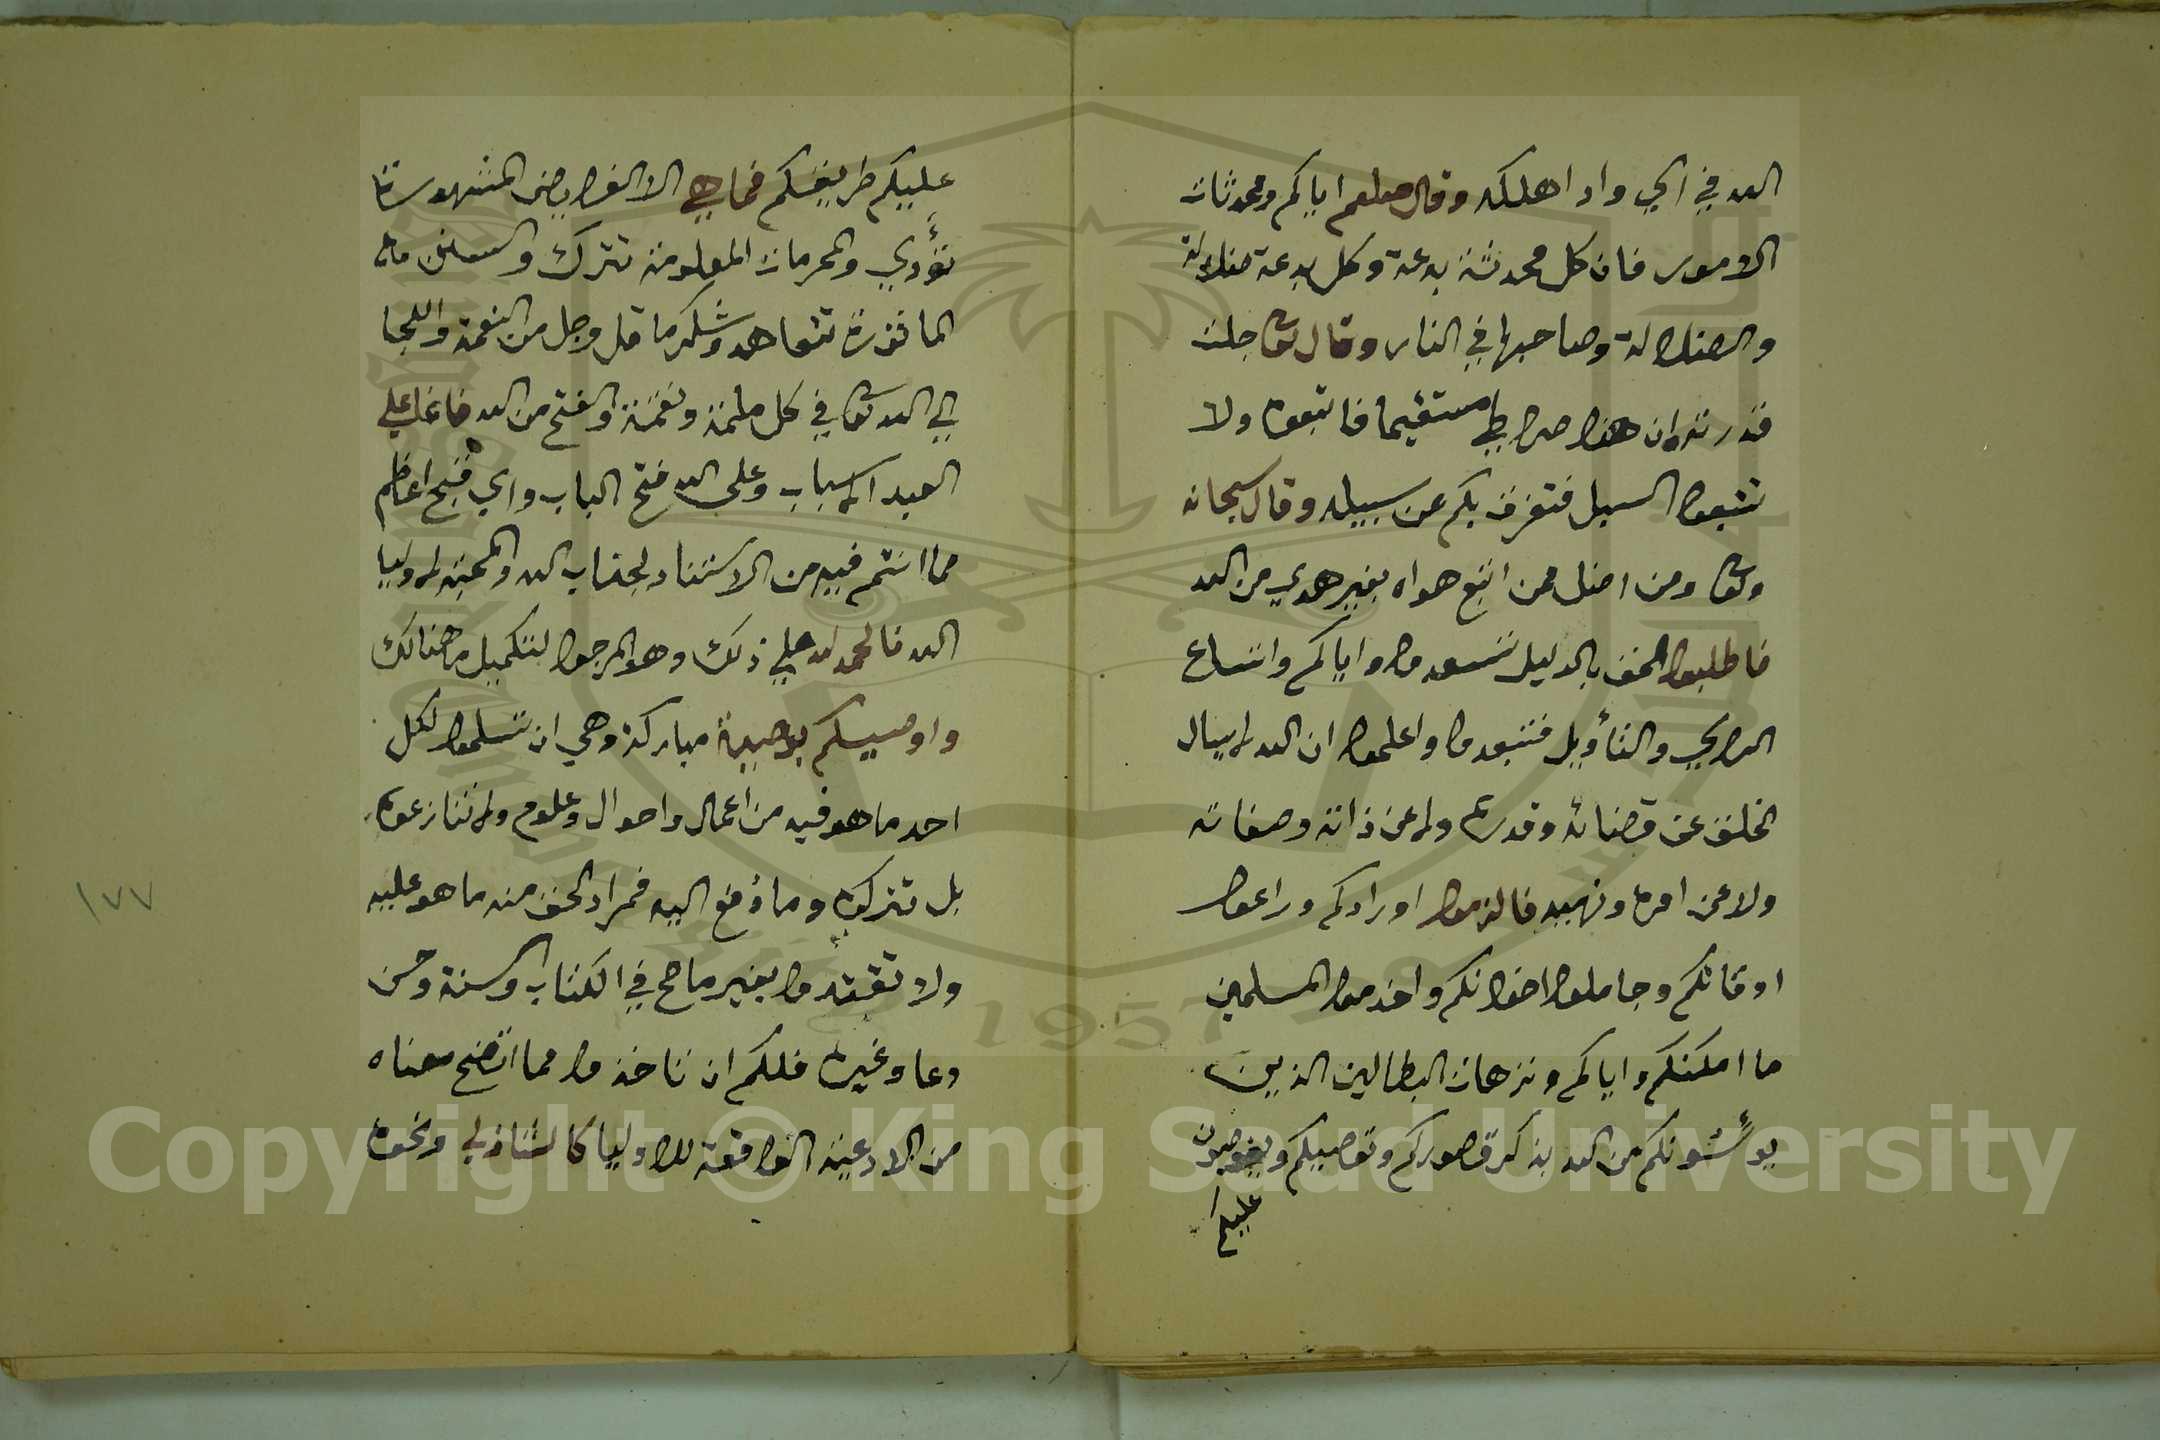 الله في اي واد اهلكه وقال صلعم اياكم ومحدثات
الامور فان كل محدثة بدعة وكل بدعة ضلالة
والضلالة وصاحبها في النار وقال تعا جلت
قدرته وان هذا صراطي مستقيما فاتبعوه ولا
تتبعوا السبل فتفرق بكم عن سبيله وقال سبحانه
وتعا ومن اضل ممن اتبع هواه بغير هدي من الله
فاطلبوا الحق بالدليل تسعدوا واياكم واتساع
الراي والتأويل فتبعدوا واعلموا ان الله لا يسال
الخلق عن قضائه وقدره ولا عن ذاته وصفاته
ولا عن امره ونهيه فالزموا اورادكم وراعوا
اوقاتكم وجاملوا اخوانكم واخدموا المسلمين
ما امكنكم واياكم ونزهات البطالين الذين
يوئسونكم من الله بذكر قصوركم وتعاصيكم
عليكم
عليكم طريقكم فما هي الا الفرايض المشهورة
تؤدي والمحرمات المعلومة تترك والسنن
الماثورة تتعاهد وشكر ما قل وجل من النعمة واللجا
الي الله تعا في كل ملمة ونقمة والفتح من الله فاعلي
العبد الاسباب وعلى الله فتح الباب واي فتح اعظم
مما انتم فيه من الاستناد لجناب الله والمحبة لاوليا
الله فالحمد لله علي ذلك وهو المرجوا لتكميل ما هنالك
واوصيكم بوصية مباركة وهي ان تسلموا لكل
احد ما هو فيه من اعمال واحوال وعلوم ولا تنازعوه
بل تتركوه وما دفع اليه فمراد الحق منه ما هو عليه
ولا تقتدوا بغير ما صح في الكتاب والسنة ومن
دعا وغيره فلكم ان تاخذوا مما اتضح معناه
من الادعية الواقعة للاوليا كالشاذلي ونحوه
١٧٧
1957
Copyright © King Saud University